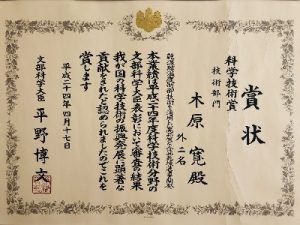 賞状
科学技術賞
技術部門
木原寛殿
外二名
本業績は平成二十四年度科学技術分野の
文部科学大臣表彰において審査の結果
我が国の科学技術の振興発展に顕著な
貢献をされたと認められましたのでこれを
賞します
平成二十四年四月十七日
文部科学大臣 平野博文